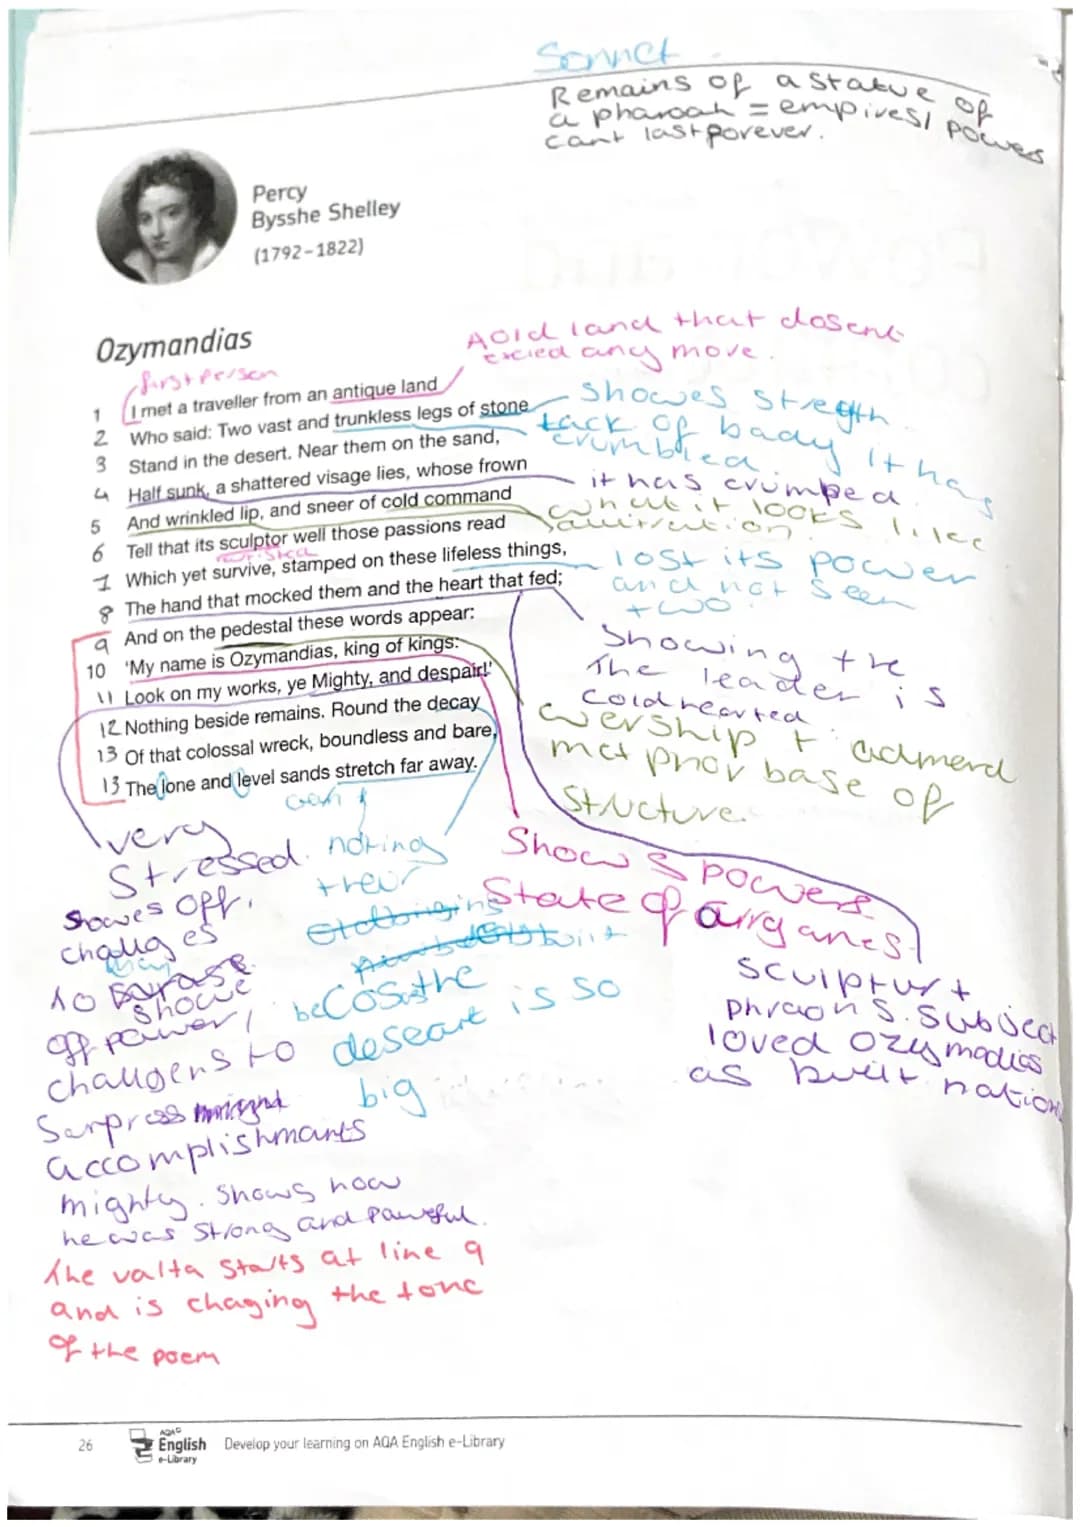 Sonnet
Remains of a statue of
a pharoah = empires/ powers
cant last forever.
Percy
Bysshe Shelley
(1792-1822)
Ozymandias
first person
A old land that dosent
any more.
1 I met a traveller from an antique land
2 Who said: Two vast and trunkless legs of stone
3 Stand in the desert. Near them on the sand,
4 Half sunk, a shattered visage lies, whose frown
5 And wrinkled lip, and sneer of cold command
6 Tell that its sculptor well those passions read
7 Which yet survive, stamped on these lifeless things,
8 The hand that mocked them and the heart that fed;
9 And on the pedestal these words appear:
10 'My name is Ozymandias, king of kings:
11 Look on my works, ye Mighty, and despair!'
12 Nothing beside remains. Round the decay
13 Of that colossal wreck, boundless and bare,
13 The lone and level sands stretch far away.
showes stregth.
lack of bady it has
crumbled.
it has crumped
what it looks like
lost its power
and not seen
two
Showing the
The leader is
cold hearted
wership + admerd
base of
structure.
Shows powers
State of arrganes
sculptur +
phraon s. subject
loved ozymadias
as built nation
very
stressed.
showes off,
challges
to
showe
off power,
challgers to
Serpress
accomplishmants
mighty. shows how
he was strong and pawerful.
nothing
ther
becos the
deseart is so
big
The valta starts at line 9
and is chaging the tone
of the poem
26
AQA
English
e-Library
Develop your learning on AQA English e-Library